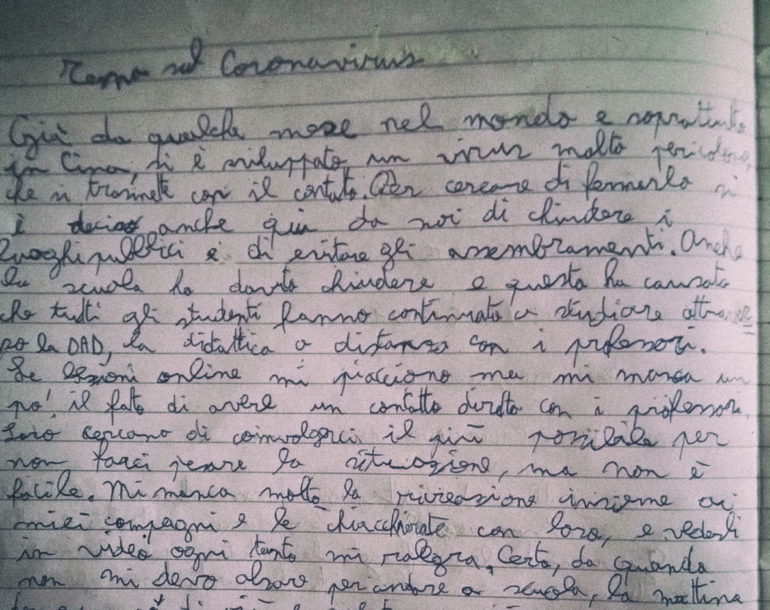 Tema sul Coronavirus
Già da qualche mese nel mondo e soprattutto
in Cina, si è sviluppato un virus molto pericoloso,
che si trasmette con il contatto. Per cercare di fermarlo si
è deciso anche qui da noi di chiudere i
luoghi pubblici e di evitare gli assembramenti. Anche
la scuola ha dovuto chiudere e questo ha causato
che tutti gli studenti hanno continuato a studiare attraver=
so la DAD, la didattica a distanza con i professori.
Le lezioni online mi piacciono ma mi manca un
po' il fatto di avere un contatto diretto con i professori.
Loro cercano di coinvolgerci il più possibile per
non farci pesare la situazione, ma non è
facile. Mi manca molto la ricreazione insieme ai
miei compagni e le chiacchierate con loro, e vederli
in video ogni tanto mi ralegra. Certo, da quando
non mi devo alzare per andare a scuola, la mattina